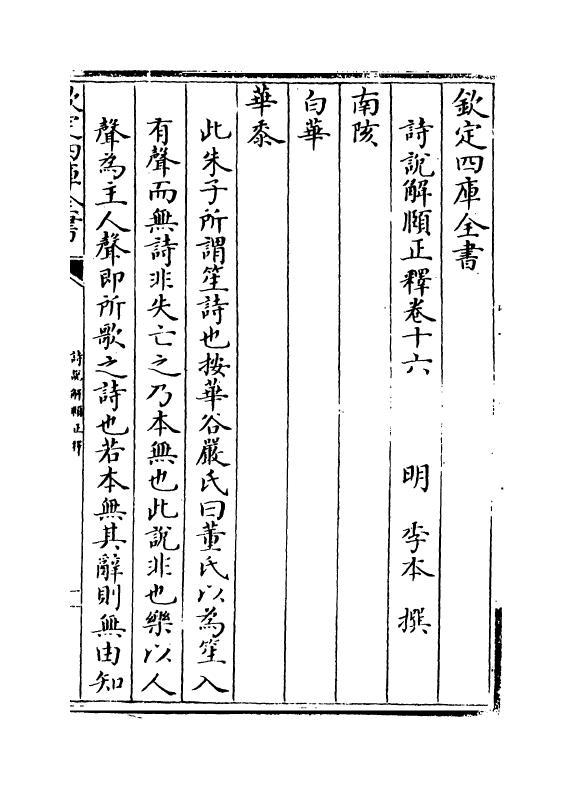 欽定四庫全書
詩說解頤正釋卷十六 明 李本 撰
南陔
白華
華黍
此朱子所謂笙詩也按華谷嚴氏曰董氏以為笙入
有聲而無詩非失亡之乃本無也此說非也樂以人
聲為主人聲即所歌之詩也若本無其辭則無由知
欽定四庫全書
詩說解頤正釋